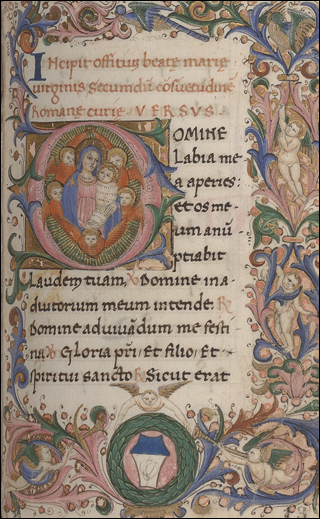 INcipit offitiuʒ beate marie
uirginis secundū cōsuetudinē
Romane curie. VERSUS.
DOMINE
Labia me
a aperies:
et os me
um anū
ptiabit
Laudem tuam, Domine in a
diutorium meum intende, R
Domine ad iuuādum me festi
na, Gloria pri, Et filio, Et
spiritui sancto R Sicut erat